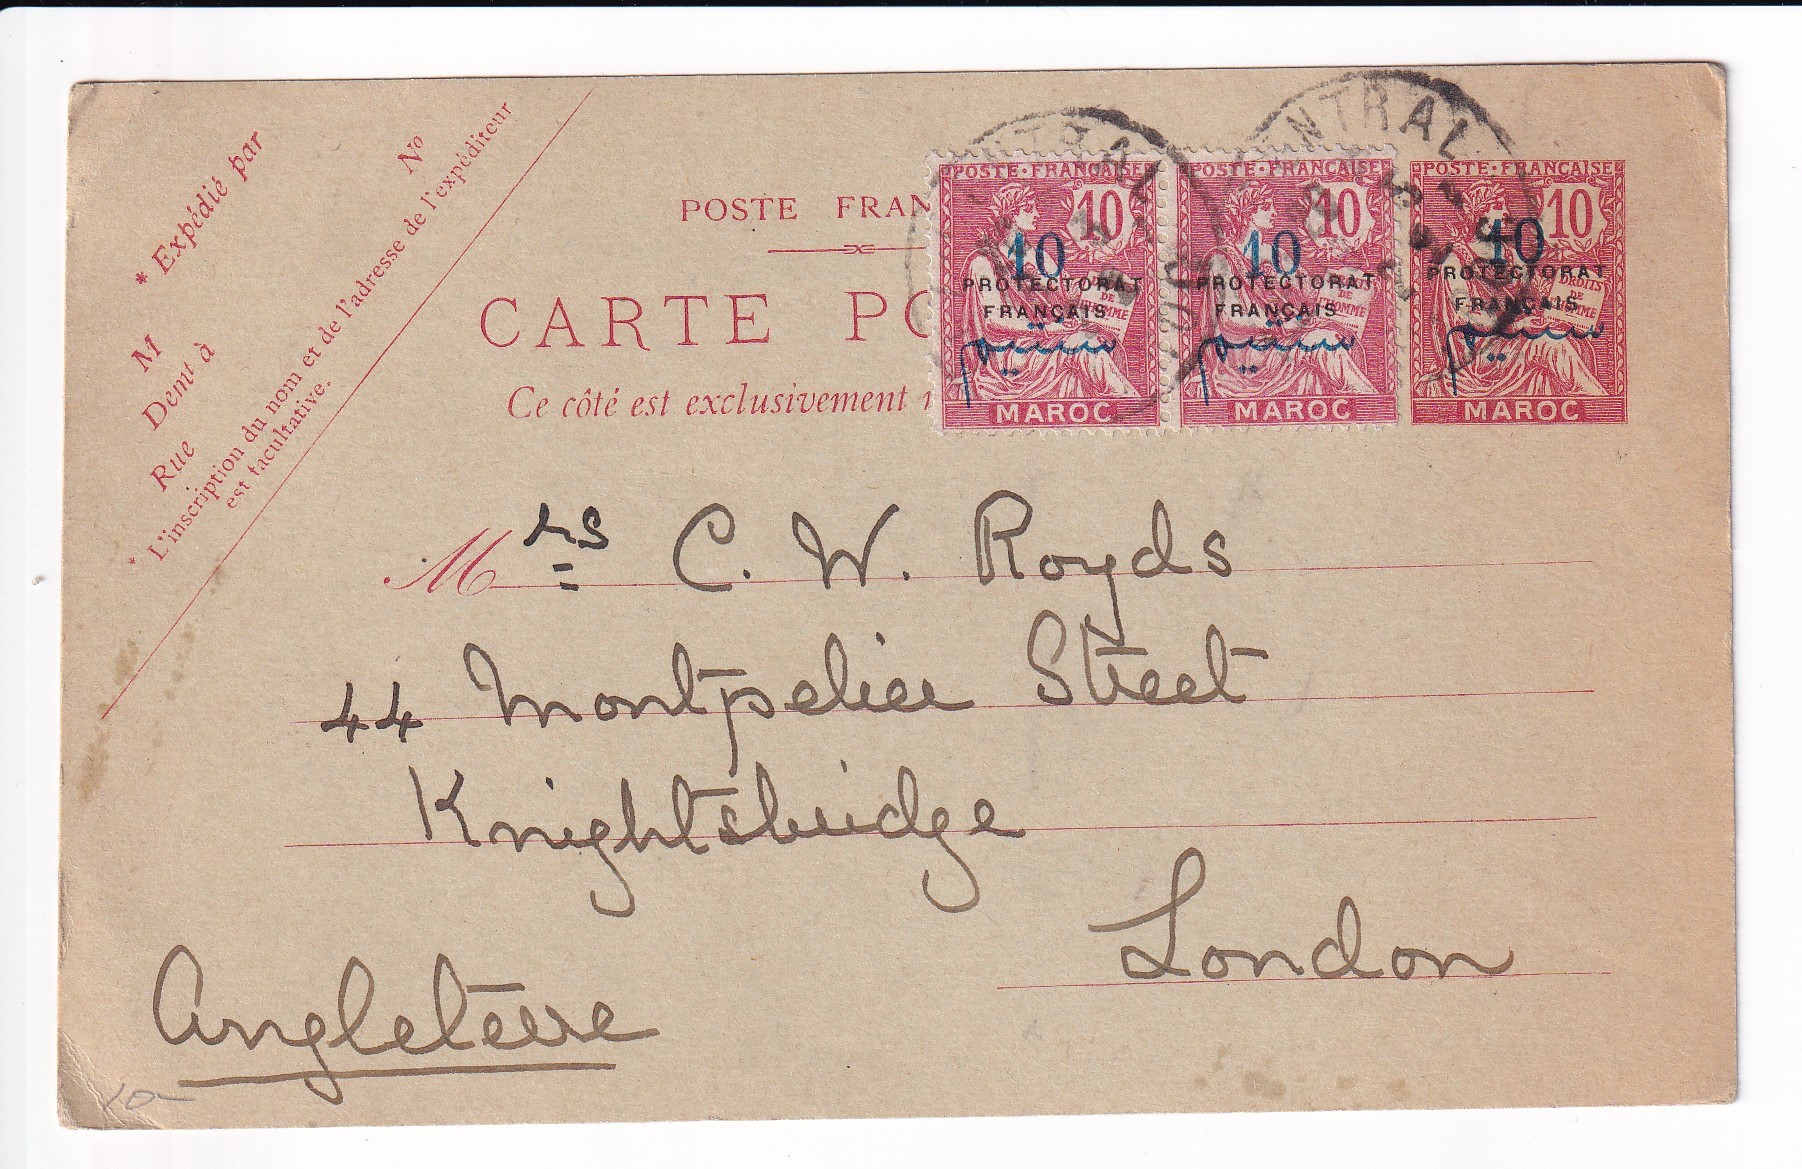 * Expédié par
M
Nº
Demt à
Rue
* L'inscription du nom et de l'adresse de l'expéditeur
est facultative.
POSTE FRAN
CARTE PO
Ce côté est exclusivement
POSTE·FRANÇAISE
10
10
PROTECTORAT
FRANÇAIS
MAROC
POSTE·FRANÇAISE
10
10
PROTECTORAT
FRANÇAIS
MAROC
POSTE·FRANÇAISE
10
10
PROTECTORAT
FRANÇAIS
DROITS
DE
L'HOMME
MAROC
NTRAL
TRAL
Mrs C. W. Royds
44 Montpelier Street
Knightsbridge
London
Angleterre
10-